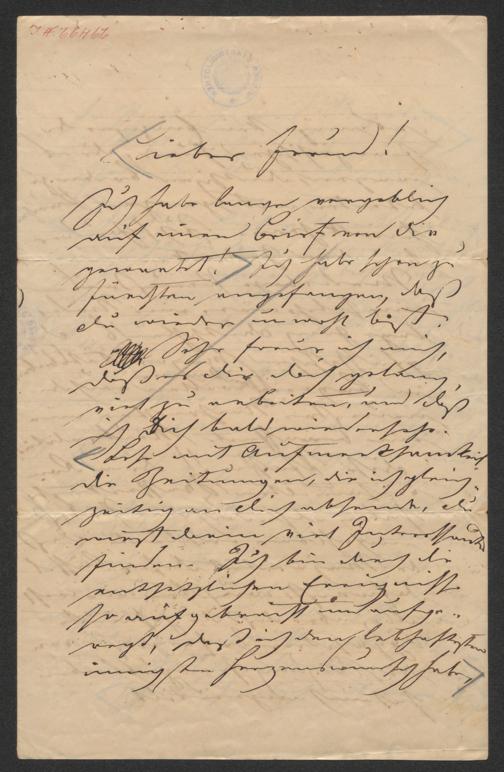 J.N. 66466
Lieber Freund!
Ich habe lange vergeblich
auf einen Brief von dir
gewartet! Ich habe schon zu
fürchten angefangen, daß
du wieder unwohl bist.
Sehr freue ich mich,
daß es dir doch gelang,
viel zu arbeiten, und daß
ich Dich bald wiedersehe.
Lese mit Aufmerksamkeit
die Zeitungen, die ich gleich-
zeitig an dich absende, du
wirst darin viel Interessantes
finden. Ich bin durch die
entsetzlichen Ereignisse
so aufgebracht und aufge-
regt, daß ich den lebhaftesten
innigsten Herzenswunsch habe,